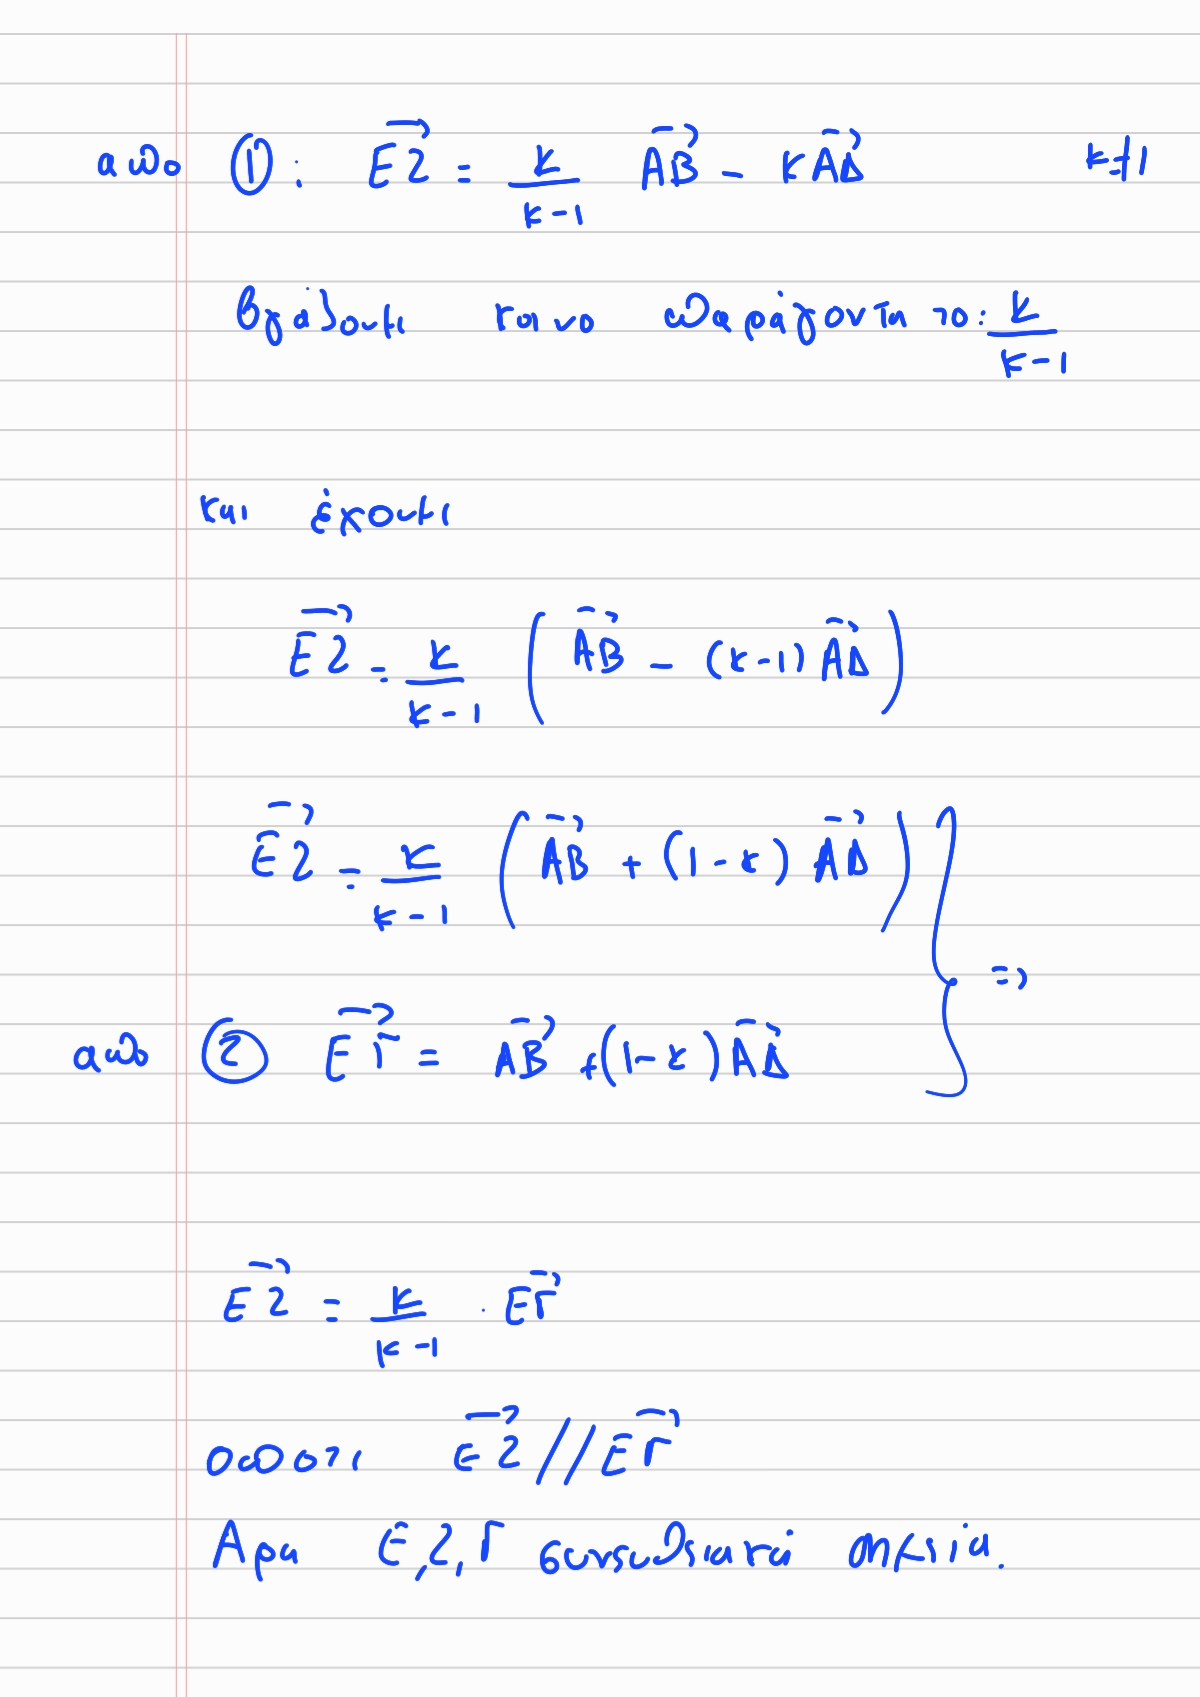 απο ①: \overrightarrow{EZ} = \frac{κ}{κ-1} \overrightarrow{AB} - κ\overrightarrow{AΔ} κ≠1
βγάζουμε κοινο παράγοντα το: \frac{κ}{κ-1}
και έχουμε
\overrightarrow{EZ} = \frac{κ}{κ-1} ( \overrightarrow{AB} - (κ-1) \overrightarrow{AΔ} )
\overrightarrow{EZ} = \frac{κ}{κ-1} ( \overrightarrow{AB} + (1-κ) \overrightarrow{AΔ} )
απο ② \overrightarrow{EΓ} = \overrightarrow{AB} + (1-κ) \overrightarrow{AΔ} } =>
\overrightarrow{EZ} = \frac{κ}{κ-1} · \overrightarrow{EΓ}
οποτι \overrightarrow{EZ} // \overrightarrow{EΓ}
Αρα E, Z, Γ συνευθειακά σημεία.